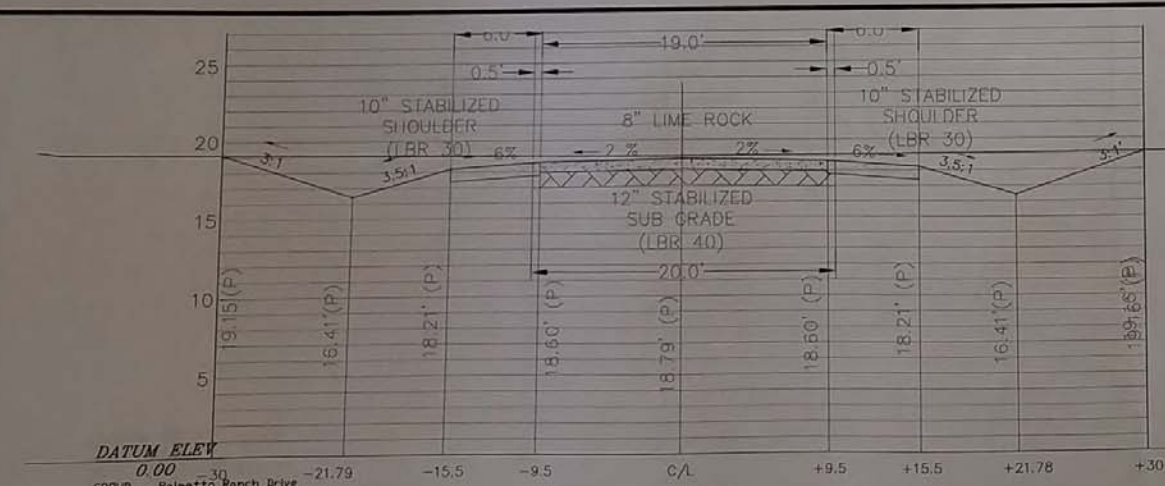 6.0'
19.0'
6.0'
25
0.5'
0.5'
10" STABILIZED
SHOULDER
(LBR 30)
8" LIME ROCK
10" STABILIZED
SHOULDER
(LBR 30)
20
3:1
3.5:1
6%
2 %
2%
6%
3.5:1
3:1
12" STABILIZED
SUB GRADE
(LBR 40)
15
20.0'
10
5
19.15'(P)
16.41'(P)
18.21' (P)
18.60' (P)
18.79' (P)
18.60' (P)
18.21' (P)
16.41'(P)
DATUM ELEV
0.00
-30
-21.79
-15.5
-9.5
C/L
+9.5
+15.5
+21.78
+30
Palmetto Ranch Drive